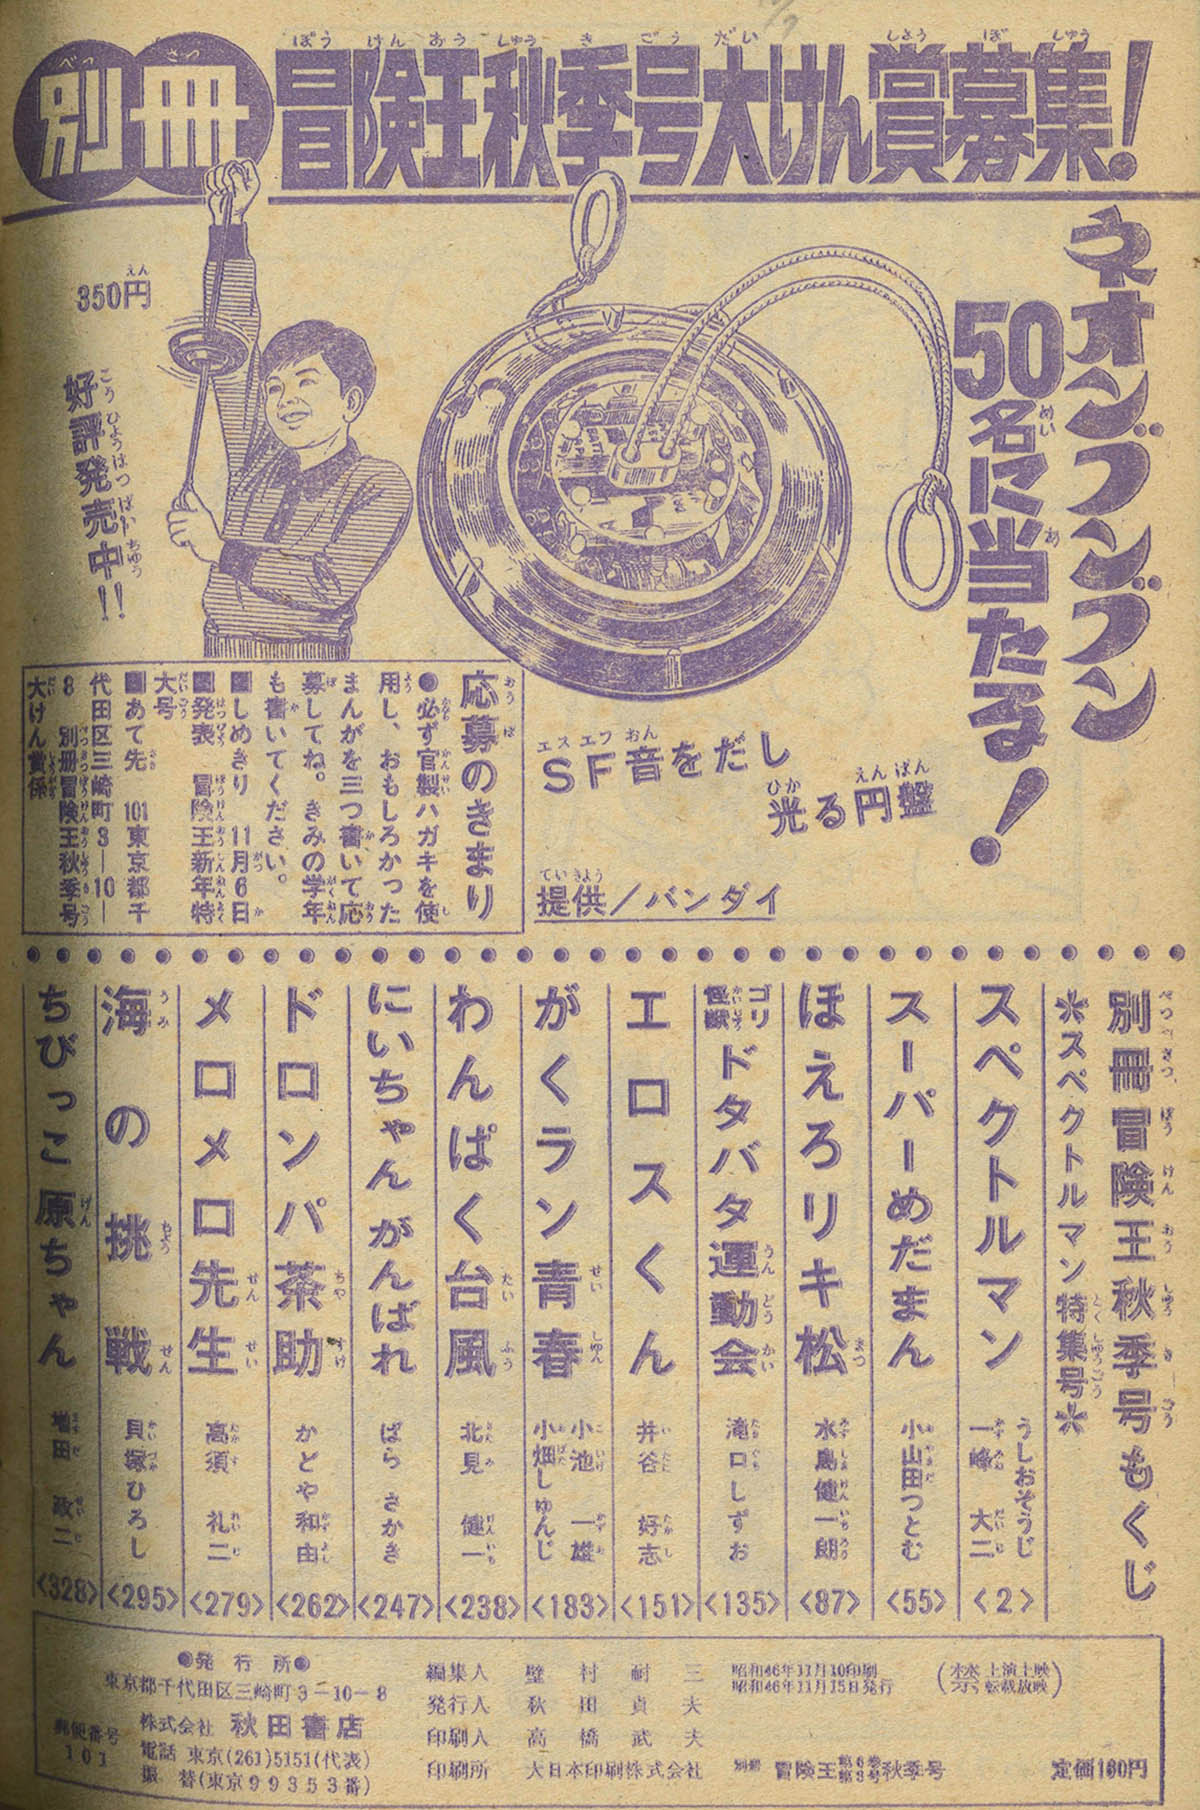 別冊
冒険王秋季号大けん賞募集!
ネオンブンブン
50名に当たる!
350円
好評発売中!!
SF音をだし
光る円盤
提供/バンダイ
応募のきまり
●必ず官製ハガキを使
用し、おもしろかった
まんがを三つ書いて応
募してね。きみの学年
も書いてください。
■しめきり 11月6日
■発表 冒険王新年特
大号
■あて先 101東京都千
代田区三崎町3—10—
8 別冊冒険王秋季号
大けん賞係
別冊冒険王秋季号もくじ
＊スペクトルマン特集号＊
スペクトルマン うしおそうじ 一峰大二 <2>
スーパーめだまん 小山田つとむ <55>
ほえろリキ松 水島健一朗 <87>
ゴリ怪獣ドタバタ運動会 滝口しずお <135>
エロスくん 井谷好志 <151>
がくラン青春 小池一雄 小畑しゅんじ <183>
わんぱく台風 北見健一 <238>
にいちゃんがんばれ ばらさかき <247>
ドロンパ茶助 かどや和由 <262>
メロメロ先生 高須礼二 <279>
海の挑戦 貝塚ひろし <295>
ちびっこ原ちゃん 増田政二 <328>
●発行所●
東京都千代田区三崎町3−10−8
郵便番号
101
株式会社 秋田書店
電話 東京(261)5151(代表)
振替(東京99353番)
編集人 壁村耐三
発行人 秋田貞夫
印刷人 高橋武夫
印刷所 大日本印刷株式会社
昭和46年11月10印刷
昭和46年11月15日発行
(禁上演上映転載放映)
別冊 冒険王第6巻第3号秋季号
定価160円